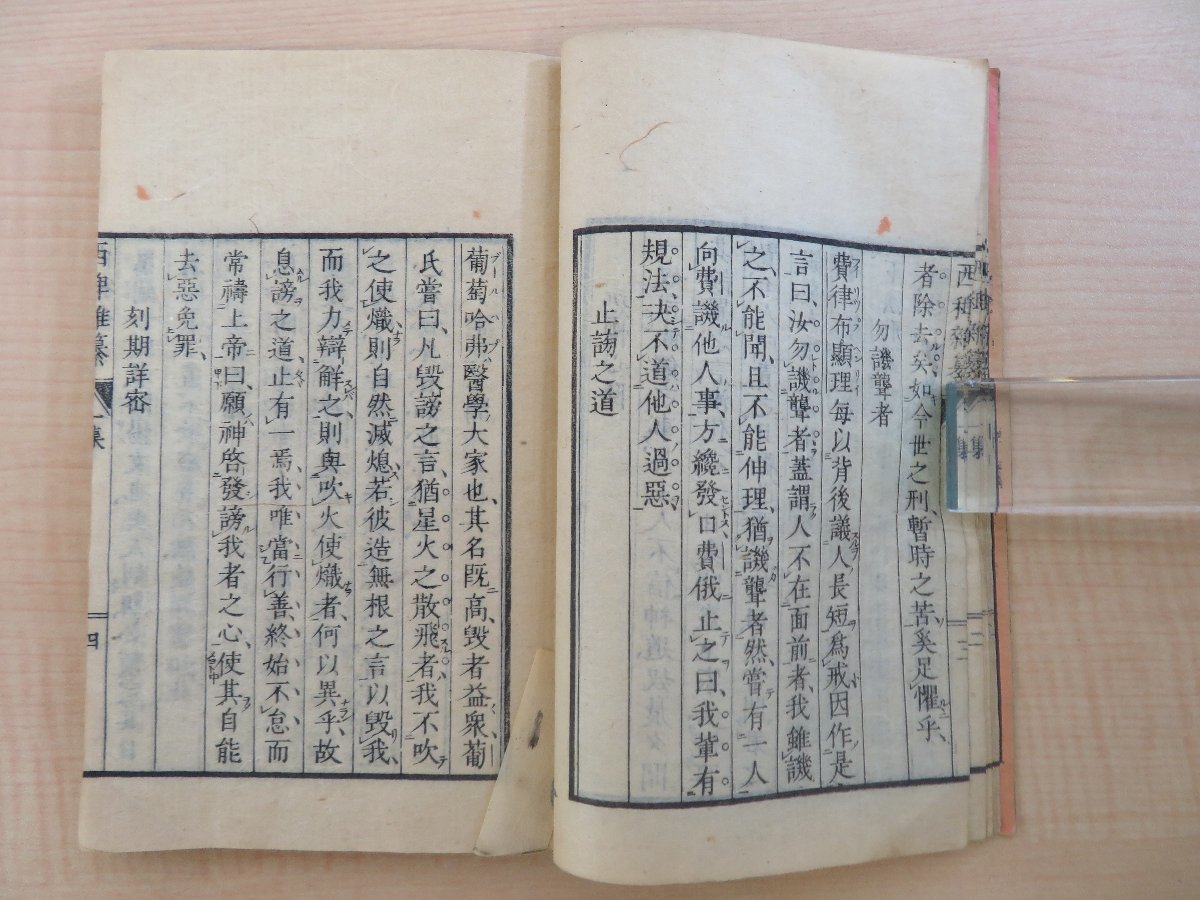 者除去矣、如今世之刑、暫時之苦、奚足懼乎、
勿譏聾者
費律布顯理每以背後議人長短爲戒因作是
言曰、汝勿譏聾者蓋謂人不在面前者、我雖譏
之、不能聞、且不能伸理、猶譏聾者然、嘗有一人
向費譏他人事、方纔發口、費俄止之曰、我輩有
規法、決不道他人過惡、
止謗之道
葡萄哈弗醫學大家也、其名既高、毀者益衆、葡
氏嘗曰、凡毀謗之言、猶星火之散飛者、我不吹
之使熾、則自然滅熄、若彼造無根之言以毀我、
而我力辯解之、則與吹火使熾者、何以異乎、故
息謗之道、止有一焉、我唯當行善、終始不怠、而
常禱上帝曰、願神啓發謗我者之心、使其自能
去惡免罪、
刻期詳審
西稗雜纂 一集 四